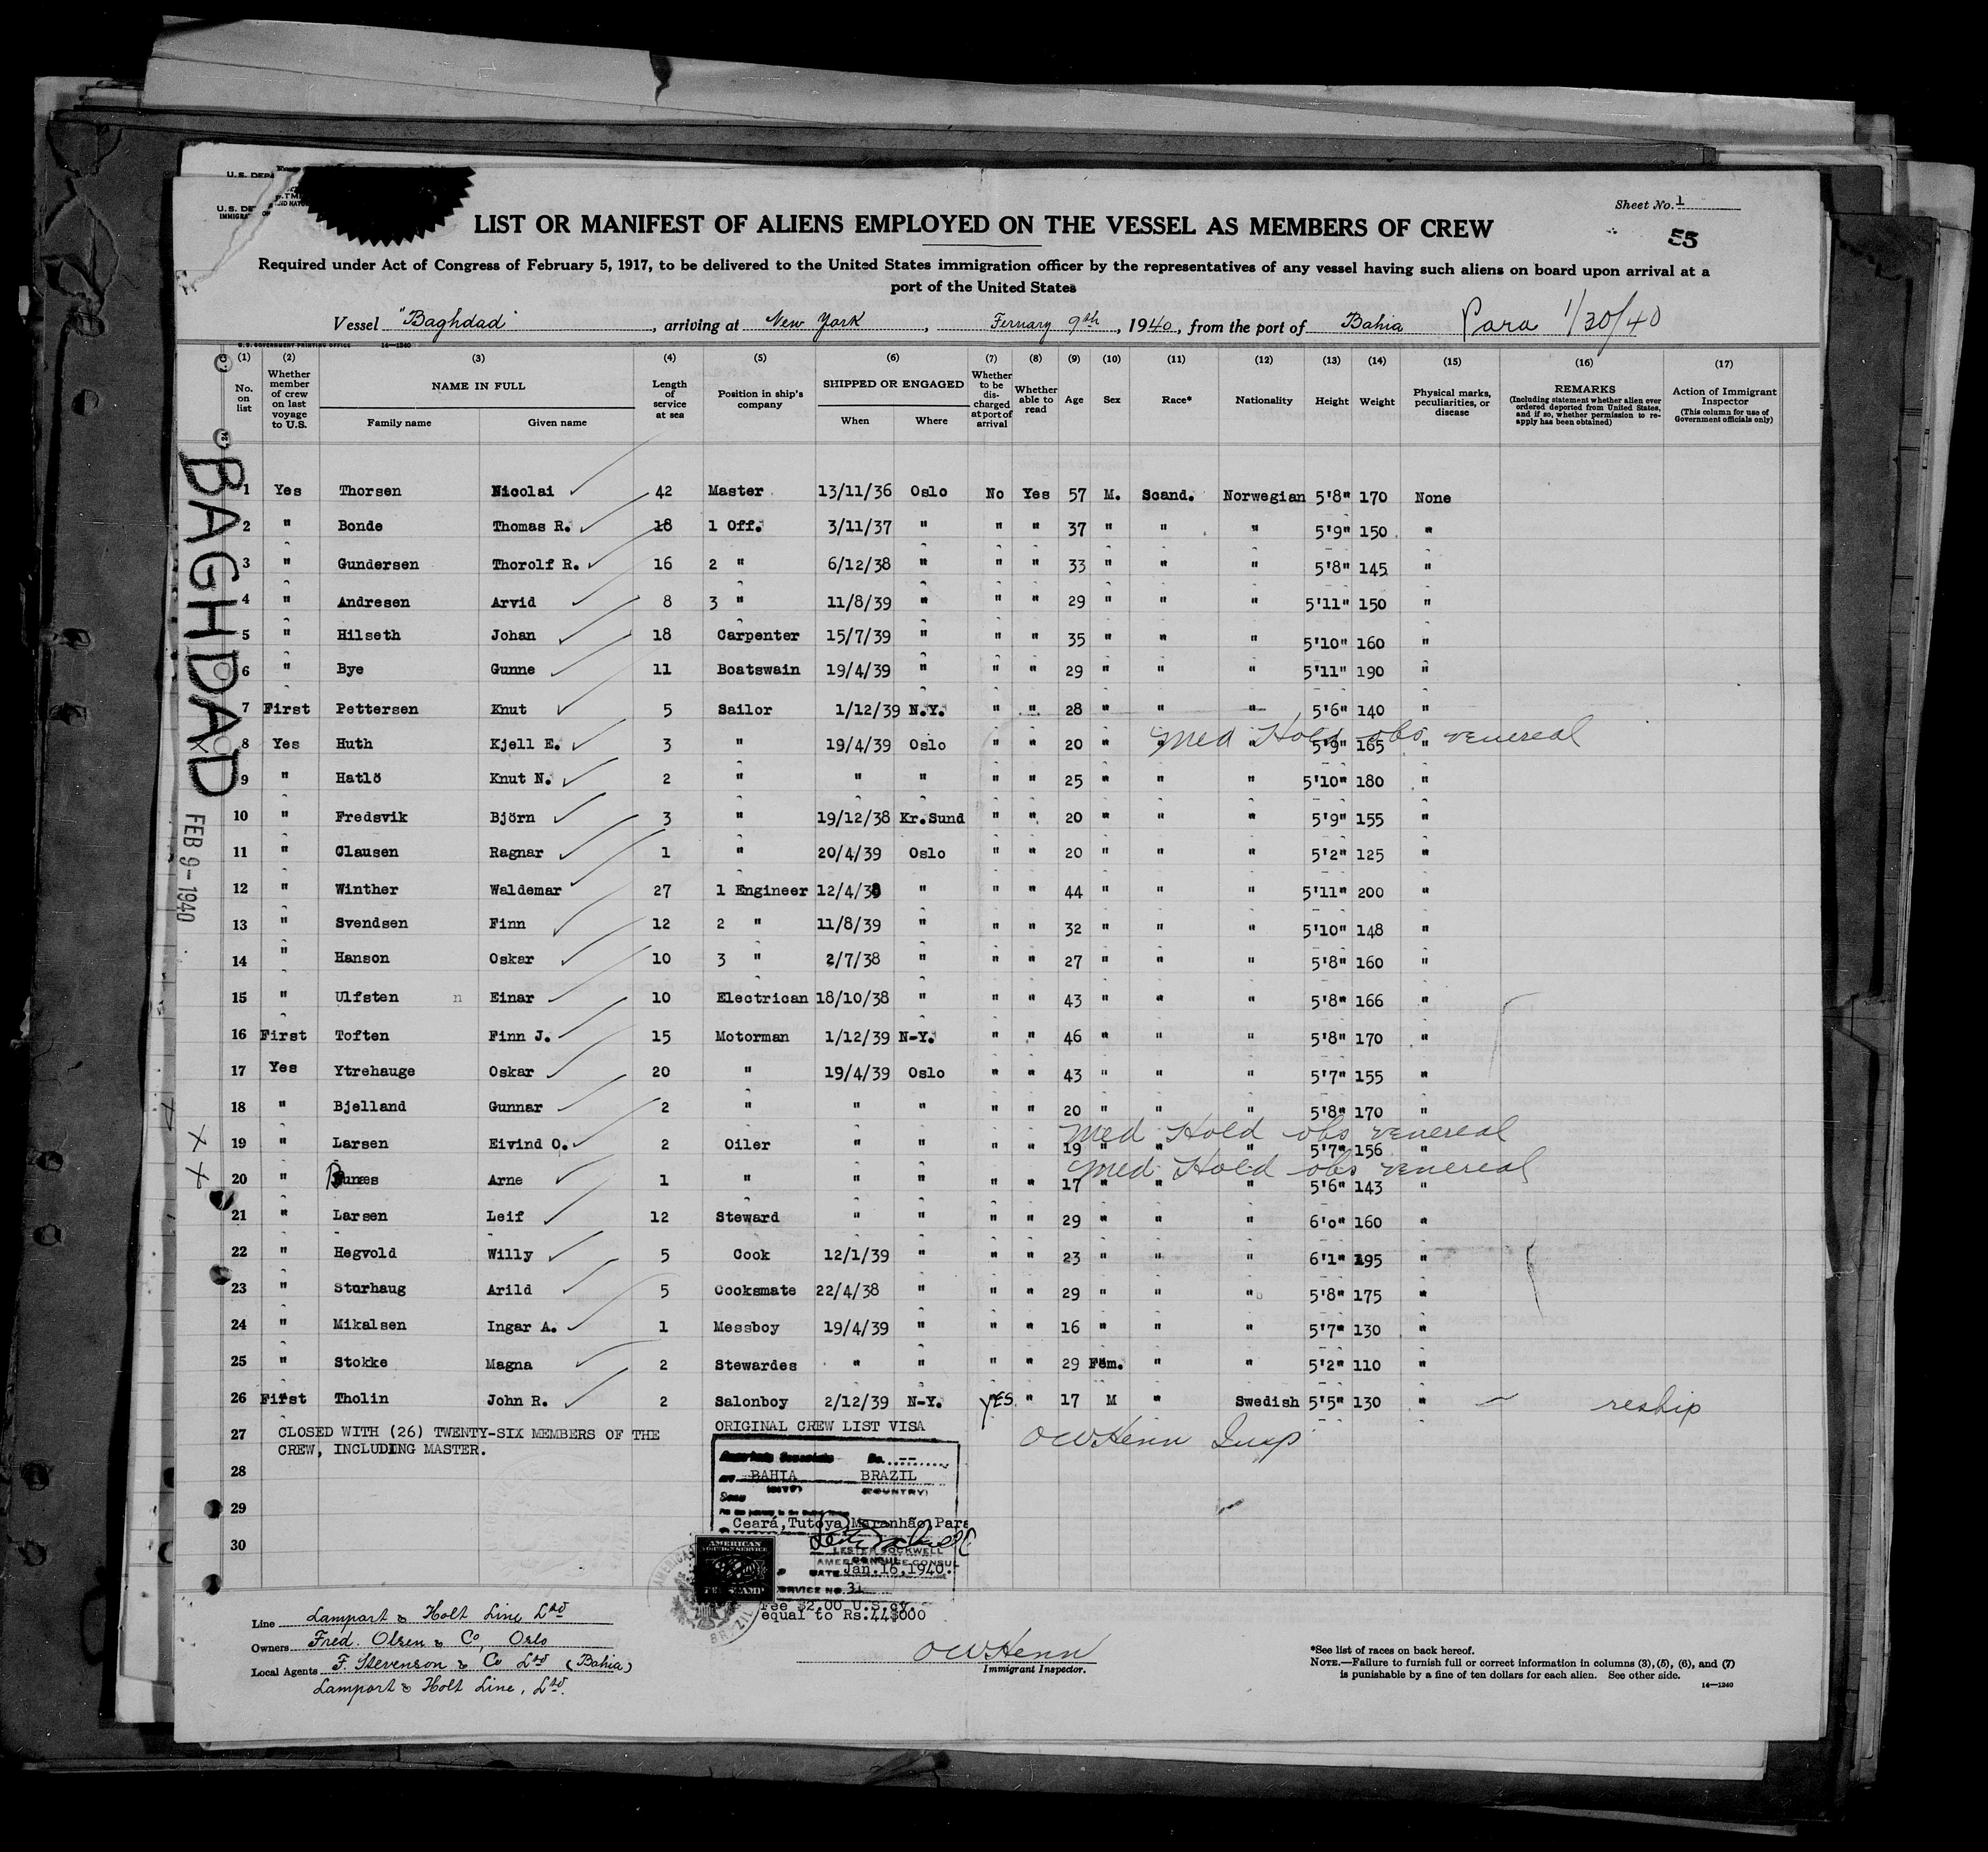 U.S. DEPA
U.S. DE
IMMIGRA
Sheet No. 1
LIST OR MANIFEST OF ALIENS EMPLOYED ON THE VESSEL AS MEMBERS OF CREW
55
Required under Act of Congress of February 5, 1917, to be delivered to the United States immigration officer by the representatives of any vessel having such aliens on board upon arrival at a
port of the United States
Vessel "Baghdad", arriving at New York, Fernary 9th, 1940, from the port of Bahia Para 1/30/40
U.S. GOVERNMENT PRINTING OFFICE 14—1240
(1) (2) (3) (4) (5) (6) (7) (8) (9) (10) (11) (12) (13) (14) (15) (16) (17)
No. on list
Whether member of crew on last voyage to U.S.
NAME IN FULL
Family name Given name
Length of service at sea
Position in ship's company
SHIPPED OR ENGAGED
When Where
Whether to be discharged at port of arrival
Whether able to read
Age
Sex
Race*
Nationality
Height
Weight
Physical marks, peculiarities, or disease
REMARKS
(Including statement whether alien ever ordered deported from United States, and if so, whether permission to reapply has been obtained)
Action of Immigrant Inspector
(This column for use of Government officials only)
BAGHDAD
FEB 9-1940
1 Yes Thorsen Nicolai 42 Master 13/11/36 Oslo No Yes 57 M. Scand. Norwegian 5'8" 170 None
2 " Bonde Thomas R. 18 1 Off. 3/11/37 " " " 37 " " " 5'9" 150 "
3 " Gundersen Thorolf R. 16 2 " 6/12/38 " " " 33 " " " 5'8" 145 "
4 " Andresen Arvid 8 3 " 11/8/39 " " " 29 " " " 5'11" 150 "
5 " Hilseth Johan 18 Carpenter 15/7/39 " " " 35 " " " 5'10" 160 "
6 " Bye Gunne 11 Boatswain 19/4/39 " " " 29 " " " 5'11" 190 "
7 First Pettersen Knut 5 Sailor 1/12/39 N.Y. " " 28 " " " 5'6" 140 "
8 Yes Huth Kjell E. 3 " 19/4/39 Oslo " " 20 " " " 5'9" 165 " Med Hold obs venereal
9 " Hatlö Knut N. 2 " " " " " 25 " " " 5'10" 180 "
10 " Fredsvik Björn 3 " 19/12/38 Kr.Sund " " 20 " " " 5'9" 155 "
11 " Clausen Ragnar 1 " 20/4/39 Oslo " " 20 " " " 5'2" 125 "
12 " Winther Waldemar 27 1 Engineer 12/4/38 " " " 44 " " " 5'11" 200 "
13 " Svendsen Finn 12 2 " 11/8/39 " " " 32 " " " 5'10" 148 "
14 " Hanson Oskar 10 3 " 2/7/38 " " " 27 " " " 5'8" 160 "
15 " Ulfsten n Einar 10 Electrican 18/10/38 " " " 43 " " " 5'8" 166 "
16 First Toften Finn J. 15 Motorman 1/12/39 N-Y. " " 46 " " " 5'8" 170 "
17 Yes Ytrehauge Oskar 20 " 19/4/39 Oslo " " 43 " " " 5'7" 155 "
18 " Bjelland Gunnar 2 " " " " " 20 " " " 5'8" 170 "
x 19 " Larsen Eivind O. 2 Oiler " " " " 19 " " " 5'7" 156 " Med Hold obs venereal
x 20 " Bunæs Arne 1 " " " " " 17 " " " 5'6" 143 " Med Hold obs venereal
21 " Larsen Leif 12 Steward " " " " 29 " " " 6'0" 160 "
22 " Hegvold Willy 5 Cook 12/1/39 " " " 23 " " " 6'1" 195 "
23 " Storhaug Arild 5 Cooksmate 22/4/38 " " " 29 " " " 5'8" 175 "
24 " Mikalsen Ingar A. 1 Messboy 19/4/39 " " " 16 " " " 5'7" 130 "
25 " Stokke Magna 2 Stewardes " " " " 29 Fem. " " 5'2" 110 "
26 First Tholin John R. 2 Salonboy 2/12/39 N-Y. YES " 17 M " Swedish 5'5" 130 " reship
27 CLOSED WITH (26) TWENTY-SIX MEMBERS OF THE
CREW, INCLUDING MASTER.
28
29
30
ORIGINAL CREW LIST VISA
OWHenn Insp
BAHIA BRAZIL
(CITY) (COUNTRY)
Seen
Ceará,Tutoya,Maranhão,Para
LESTER
AMERICAN CONSUL
DATE Jan.16,1940.
SERVICE NO. 31
Fee $2.00 U.S.cy.
equal to Rs.44$000
AMERICAN
FOREIGN SERVICE
FEE STAMP
Line Lamport & Holt Line Ltd
Owners Fred. Olsen & Co, Oslo
Local Agents F. Stevenson & Co Ltd (Bahia)
Lamport & Holt Line, Ltd.
OWHenn
Immigrant Inspector.
*See list of races on back hereof.
NOTE.—Failure to furnish full or correct information in columns (3), (5), (6), and (7)
is punishable by a fine of ten dollars for each alien. See other side.
14—1240